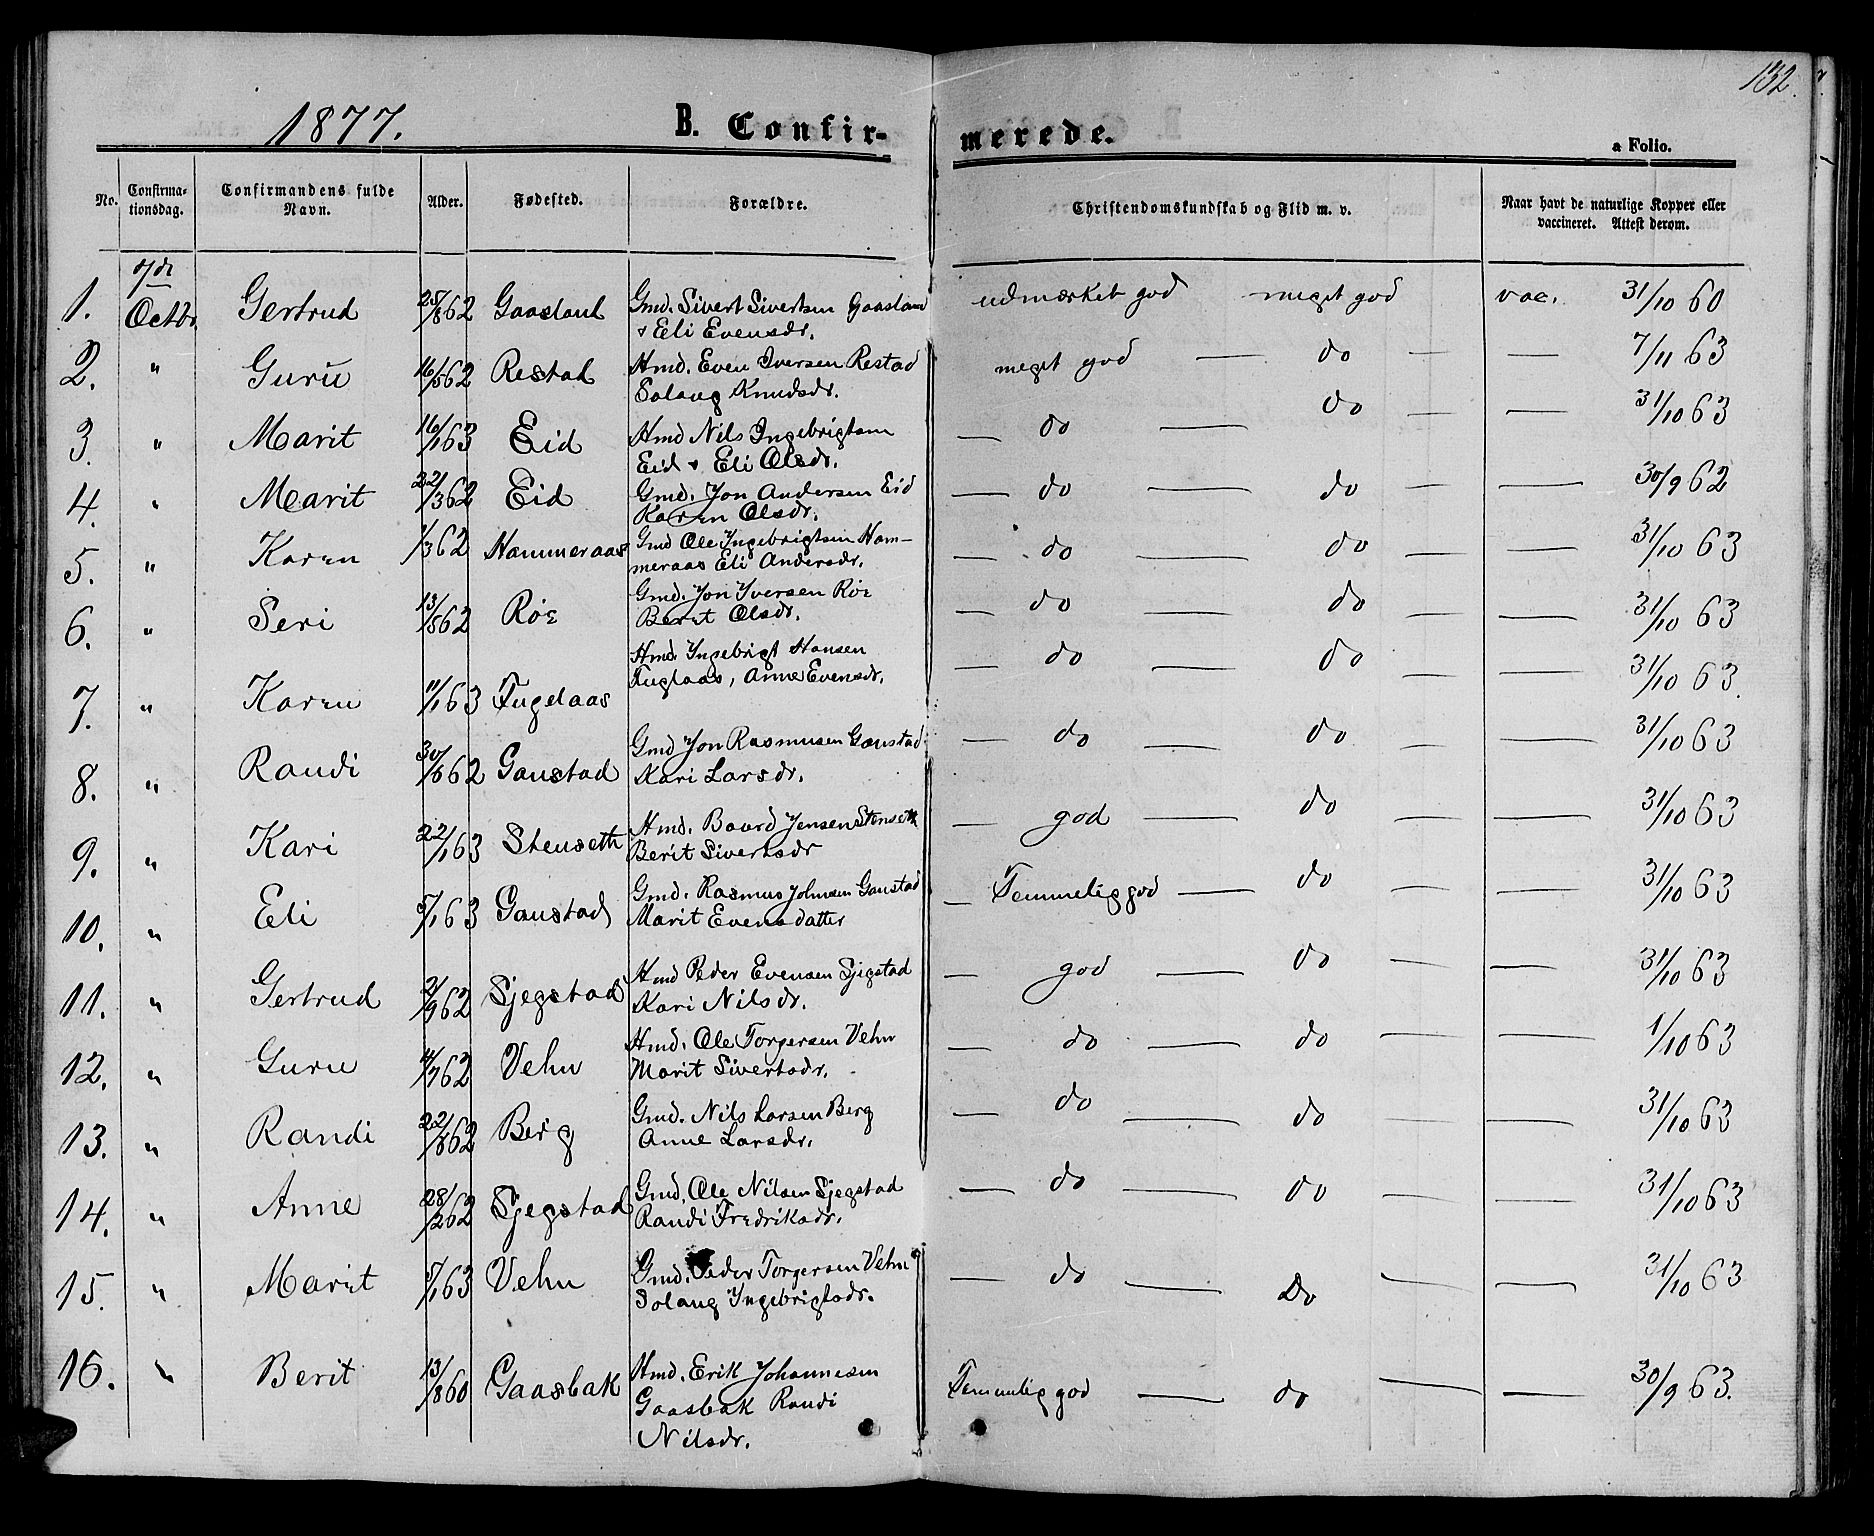 132.
1877. B. Confir- merede.
a Folio.
No. Confirma-tionsdag. Confirmandens fulde Navn. Alder. Fødested. Forældre. Christendomskundskab og Flid m. v. Naar havt de naturlige Kopper eller vaccineret. Attest derom.
1. 7de Octbr Gertrud 25/8 62 Gaasland Gmd. Sivert Sivertsen Gaasland
& Eli Evensdr. udmærket god meget god vac. 31/10 60
2. " Guru 16/5 62 Restad Hmd. Even Iversen Restad
Solaug Knudsdr. meget god — do — — 7/11 63
3. " Marit 16/1 63 Eid Hmd Nils Ingebrigtsen
Eid & Eli Olsdr. — do — do — — 31/10 63
4. " Marit 22/3 62 Eid Gmd. Jon Andersen Eid
Karen Olsdr. — do — do — — 30/9 62
5. " Karen 1/3 62 Hammeraas Gmd Ole Ingebrigtsen Ham-
meraas Eli Andersdr. — do — do — — 31/10 63
6. " Seri 13/8 62 Röe Gmd. Jon Iversen Röe
Berit Olsdr. — do — do — — 31/10 63
7. " Karen 11/1 63 Fugelaas Hmd. Ingebrigt Hansen
Fuglaas, Anne Evensdr. — do — do — — 31/10 63.
8. " Randi 30/6 62 Ganstad Gmd Jon Rasmusen Ganstad
Kari Larsdr. — do — do — — 31/10 63
9. " Kari 22/1 63 Stenseth Hmd. Baard Jensen Stenseth
Berit Sivertsdr — god — do — — 31/10 63
10. " Eli 5/1 63 Ganstad Gmd. Rasmus Johnsen Ganstad
Marit Evensdatter — Temmelig god — do — — 31/10 63
11. " Gertrud 2/9 62 Sjegstad Hmd Peder Evensen Sjegstad
Kari Nilsdr. — god — do — — 31/10 63
12. " Guru 11/7 62 Vehn Hmd. Ole Torgersen Vehn
Marit Sivertsdr. — do — do — — 1/10 63
13. " Randi 22/8 62 Berg Gmd. Nils Larsen Berg
Anne Larsdr. — do — do — — 31/10 63
14. " Anne 28/2 62 Sjegstad Gmd. Ole Nilsen Sjegstad
Randi Fredriksdr. — do — do — — 31/10 63
15. " Marit 5/1 63 Vehn Gmd. Peder Torgersen Vehn
Solaug Ingebrigtsdr. — do — Do — — 31/10 63
16. " Berit 13/8 60 Gaasbak Hmd. Erik Johannesen
Gaasbak Randi
Nilsdr. Temmelig god — do — — 30/9 63.